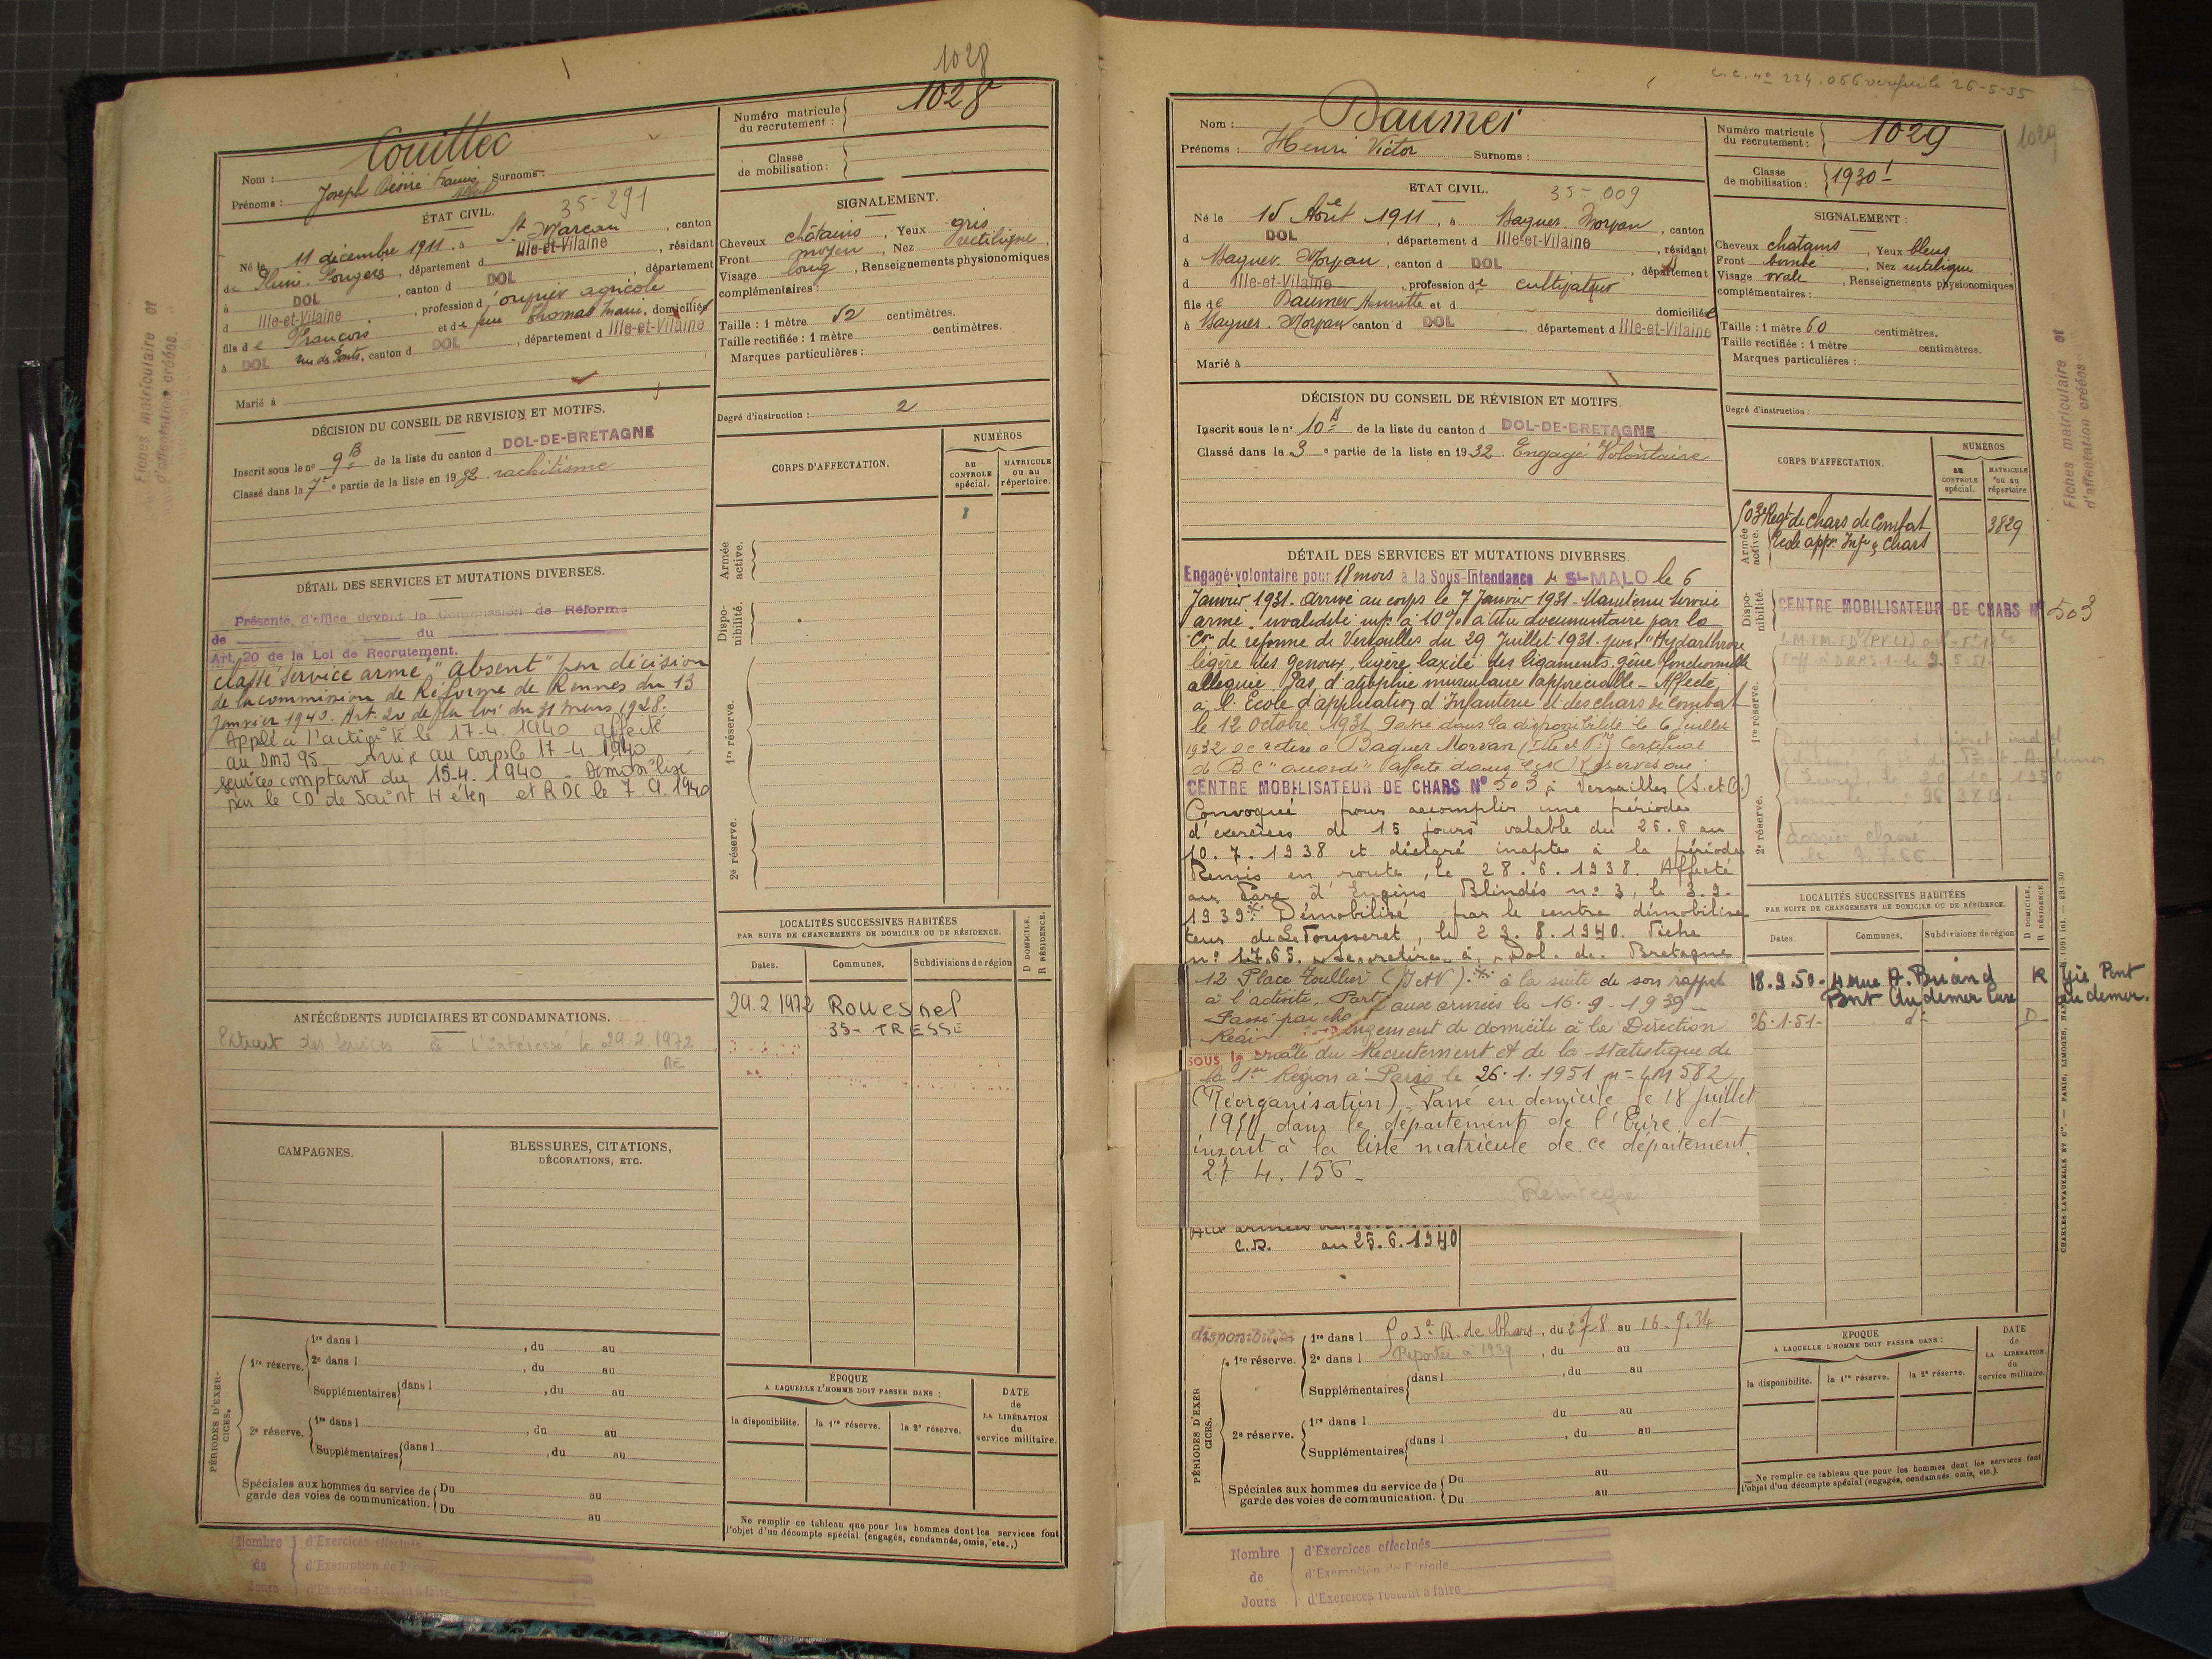 1028
Nom : Couillec
Numéro matricule du recrutement : 1028
Prénoms : Joseph Désiré Francis Surnoms :
Classe de mobilisation :
ÉTAT CIVIL.
35-291
Né le 11 décembre 1911, à St Marcan, canton
de Pleine-Fougères, département d Ille-et-Vilaine, résidant
à DOL, canton d DOL, département
d Ille-et-Vilaine, profession d'ouvrier agricole
fils de François et de feue Thomas Marie, domiciliés
à DOL rue des Ponts, canton d DOL, département d Ille-et-Vilaine
Marié à
SIGNALEMENT.
Cheveux châtains, Yeux gris
Front moyen, Nez rectiligne,
Visage long, Renseignements physionomiques
complémentaires :
Taille : 1 mètre 52 centimètres.
Taille rectifiée : 1 mètre centimètres.
Marques particulières :
DÉCISION DU CONSEIL DE REVISION ET MOTIFS.
Inscrit sous le no 9 B de la liste du canton d DOL-DE-BRETAGNE
Classé dans la 7e partie de la liste en 1932. rachitisme
Degré d'instruction : 2
CORPS D'AFFECTATION.
NUMÉROS
AU CONTROLE spécial.
MATRICULE ou au répertoire.
Armée active.
Disponibilité.
1re réserve.
2e réserve.
DÉTAIL DES SERVICES ET MUTATIONS DIVERSES.
Présenté d'office devant la Commission de Réforme
de du
Art. 20 de la Loi de Recrutement.
classé service armé "Absent" par décision
de la commission de Réforme de Rennes du 13
Janvier 1940. Art. 20 de la loi du 31 mars 1928.
Appelé à l'activité le 17-4.1940 affecté
au DMI 95 Arrivé au corps le 17-4 1940
services comptant du 15-4.1940 - Démobilisé
par le CD de Saint Hélen et RDC le 7.9.1940
LOCALITÉS SUCCESSIVES HABITÉES
PAR SUITE DE CHANGEMENTS DE DOMICILE OU DE RÉSIDENCE.
Dates. Communes. Subdivisions de région
D DOMICILE. R RÉSIDENCE.
29.2.1972 Rouesnel
35- TRESSE
ANTÉCÉDENTS JUDICIAIRES ET CONDAMNATIONS.
Extrait des services à l'intéressé le 29.2.1972
CAMPAGNES.
BLESSURES, CITATIONS,
DÉCORATIONS, ETC.
PÉRIODES D'EXERCICES.
1re réserve. 1re dans l , du au
2e dans l , du au
Supplémentaires dans l , du au
2e réserve. 1re dans l , du au
Supplémentaires dans l , du au
Spéciales aux hommes du service de garde des voies de communication. Du au
Du au
ÉPOQUE
A LAQUELLE L'HOMME DOIT PASSER DANS :
la disponibilité. la 1re réserve. la 2e réserve.
DATE de LA LIBÉRATION du service militaire.
Ne remplir ce tableau que pour les hommes dont les services font
l'objet d'un décompte spécial (engagés, condamnés, omis, etc.,)
Nombre de Jours
d'Exercices effectués
d'Exemption de Période
d'Exercices restant à faire
Fiches matriculaire et
d'affectation créées.
Nom : Daumer
Prénoms : Henri Victor Surnoms :
Numéro matricule du recrutement : 1029
1029
Classe de mobilisation : 1930
ETAT CIVIL.
35-009
Né le 15 Août 1911, à Baguer-Morvan, canton
d DOL, département d Ille-et-Vilaine, résidant
à Baguer-Morvan, canton d DOL, département
d Ille-et-Vilaine, profession de cultivateur
fils de Daumer Henriette et d domiciliée
à Baguer-Morvan canton d DOL, département d Ille-et-Vilaine
Marié à
SIGNALEMENT :
Cheveux chatains, Yeux bleus
Front bombé, Nez rectiligne
Visage ovale, Renseignements physionomiques
complémentaires :
Taille : 1 mètre 60 centimètres.
Taille rectifiée : 1 mètre centimètres.
Marques particulières :
DÉCISION DU CONSEIL DE RÉVISION ET MOTIFS.
Inscrit sous le no 10 de la liste du canton d DOL-DE-BRETAGNE
Classé dans la 3e partie de la liste en 1932. Engagé Volontaire
Degré d'instruction :
CORPS D'AFFECTATION.
NUMÉROS
AU CONTROLE spécial.
MATRICULE ou au répertoire.
Armée active.
503e Regt de chars de Combat 3829
Ecole appn Infie & Chars
Disponibilité.
CENTRE MOBILISATEUR DE CHARS No 503
1re réserve.
2e réserve.
dossier classé
DÉTAIL DES SERVICES ET MUTATIONS DIVERSES.
Engagé volontaire pour 18 mois à la Sous-Intendance de St-MALO le 6
Janvier 1931. Arrivé au corps le 7 Janvier 1931 - Maintenu service
armé invalidité infre à 10% à titre documentaire par la
Con de réforme de Versailles du 29 Juillet 1931. pour "Hydarthrose
légère des genoux, légère laxité des ligaments. gêne fonctionnelle
alléguée. Pas d'atrophie musculaire appréciable - Affecté
à l'Ecole d'application d'Infanterie et des chars de combat
le 12 octobre 1931. Passé dans la disponibilité le 6 juillet
1932 se retire à Baguer Morvan (Ille et Vne) Certificat
de B C "accordé" Affecté dans les Réserves au
CENTRE MOBILISATEUR DE CHARS No 503 à Versailles (S. et O.)
Convoqué pour accomplir une période
d'exercices de 15 jours valable du 26.6 au
10.7.1938 et déclaré inapte à la période
Remis en route, le 28.6.1938. Affecté
au Parc d'Engins Blindés no 3, le 3.9.
1939. Démobilisé par le centre démobilisa
teur de Le Tousseret, le 23.8.1940. Fiche
no 1765. Se retire à Dol. de. Bretagne
12 Place Toullier (I et V). à la suite de son rappel
à l'activité. Part aux armées le 16.9.1939
Passé par changement de domicile à la Direction
sous le
du Recrutement et de la statistique de
la 1ère Région à Paris le 26.1.1951 no LM 582
(Réorganisation). Passé en domicile le 18 juillet
dans le département de l'Eure et
inscrit à la liste matricule de ce département.
27 4. 156 -
Réintégré
C.D. au 25.6.1940
LOCALITÉS SUCCESSIVES HABITÉES
PAR SUITE DE CHANGEMENTS DE DOMICILE OU DE RÉSIDENCE.
Dates. Communes. Subdivisions de région
D DOMICILE. R RÉSIDENCE.
18.9.50 - 4 rue A. Briand R Gie Pont
Pont Audemer Eure Audemer.
26.1.51- do D-
PÉRIODES D'EXERCICES.
disponibilité
1re réserve. 1re dans l 503e R. de Chars, du 27 8 au 16.9.34
2e dans l Reportée à 1939, du au
Supplémentaires dans l , du au
2e réserve. 1re dans l du au
Supplémentaires dans l , du au
Spéciales aux hommes du service de garde des voies de communication. Du au
Du au
EPOQUE
A LAQUELLE L'HOMME DOIT PASSER DANS :
la disponibilité. la 1re réserve. la 2e réserve.
DATE de LA LIBÉRATION du service militaire.
Ne remplir ce tableau que pour les hommes dont les services font
l'objet d'un décompte spécial (engagés, condamnés, omis, etc.).
Nombre de Jours
d'Exercices effectués
d'Exemption de Période
d'Exercices restant à faire
Fiches matriculaire et
d'affectation créées
CHARLES-LAVAUZELLE ET Cie. — PARIS, LIMOGES, NANCY